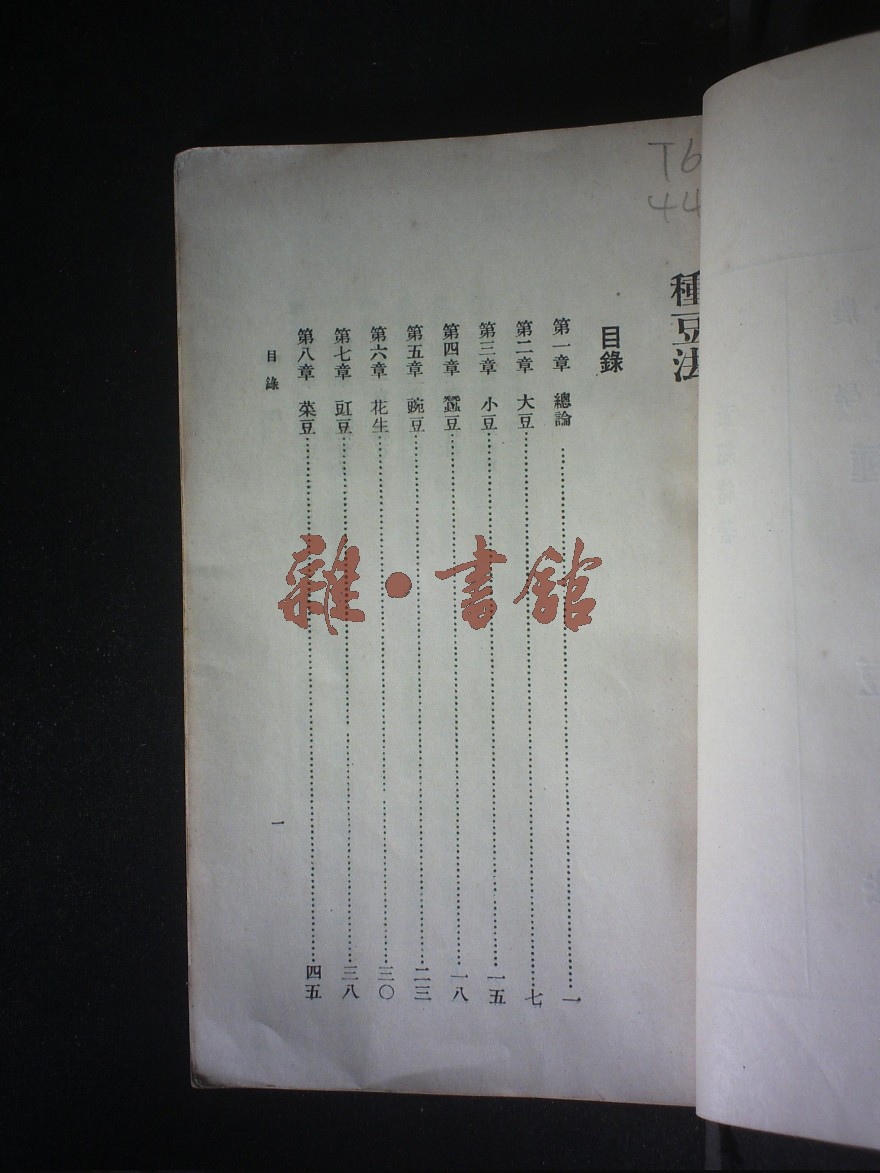 T6
44
種豆法
目錄
第一章 總論……一
第二章 大豆……七
第三章 小豆……一五
第四章 蠶豆……一八
第五章 豌豆……二三
第六章 花生……三〇
第七章 豇豆……三八
第八章 菜豆……四五
目錄
一
雜·書館